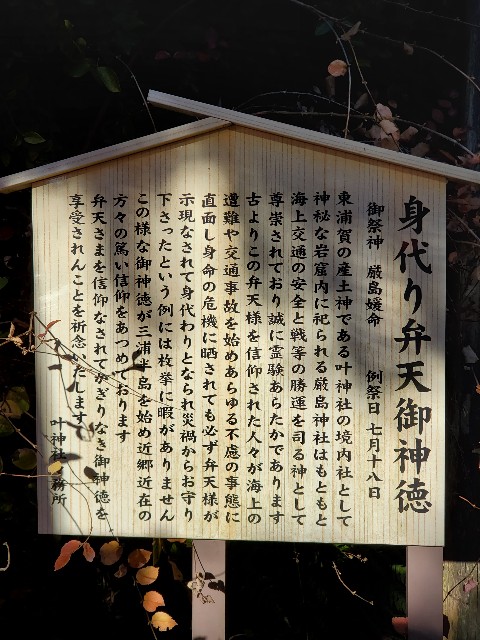 身代り弁天御神徳
御祭神 厳島媛命 例祭日 七月十八日
東浦賀の産土神である叶神社の境内社として
神秘な岩窟内に祀られる厳島神社はもともと
海上交通の安全と戦等の勝運を司る神として
尊崇されており誠に霊験あらたかであります
古よりこの弁天様を信仰された人々が海上の
遭難や交通事故を始めあらゆる不慮の事態に
直面し身命の危機に晒されても必ず弁天様が
示現なされて身代わりとなられ災禍からお守り
下さったという例には枚挙に暇がありません
この様な御神徳が三浦半島を始め近郷近在の
方々の篤い信仰をあつめております
弁天さまを信仰なされてかぎりなき御神徳を
享受されんことを祈念いたします
叶神社務所